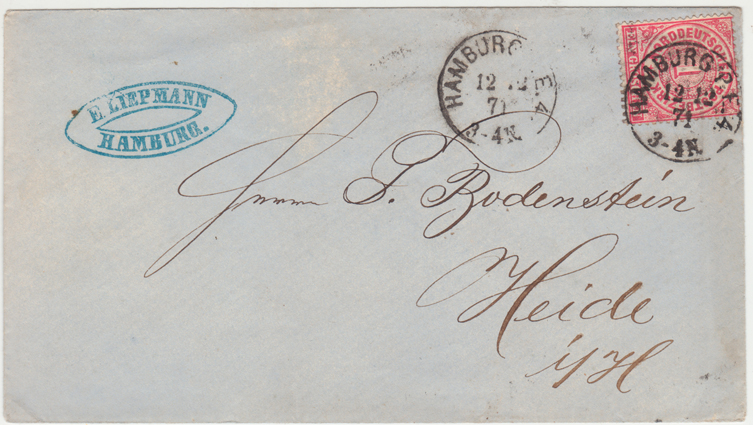 E. LIEPMANN
HAMBURG.
HAMBURG P.E.4.
12 12
71
3-4N.
NORDDEUTSCHER
1
HAMBURG P.E.4.
12 12
71
3-4N.
Herrn J. Bodenstein
Heide
i/H